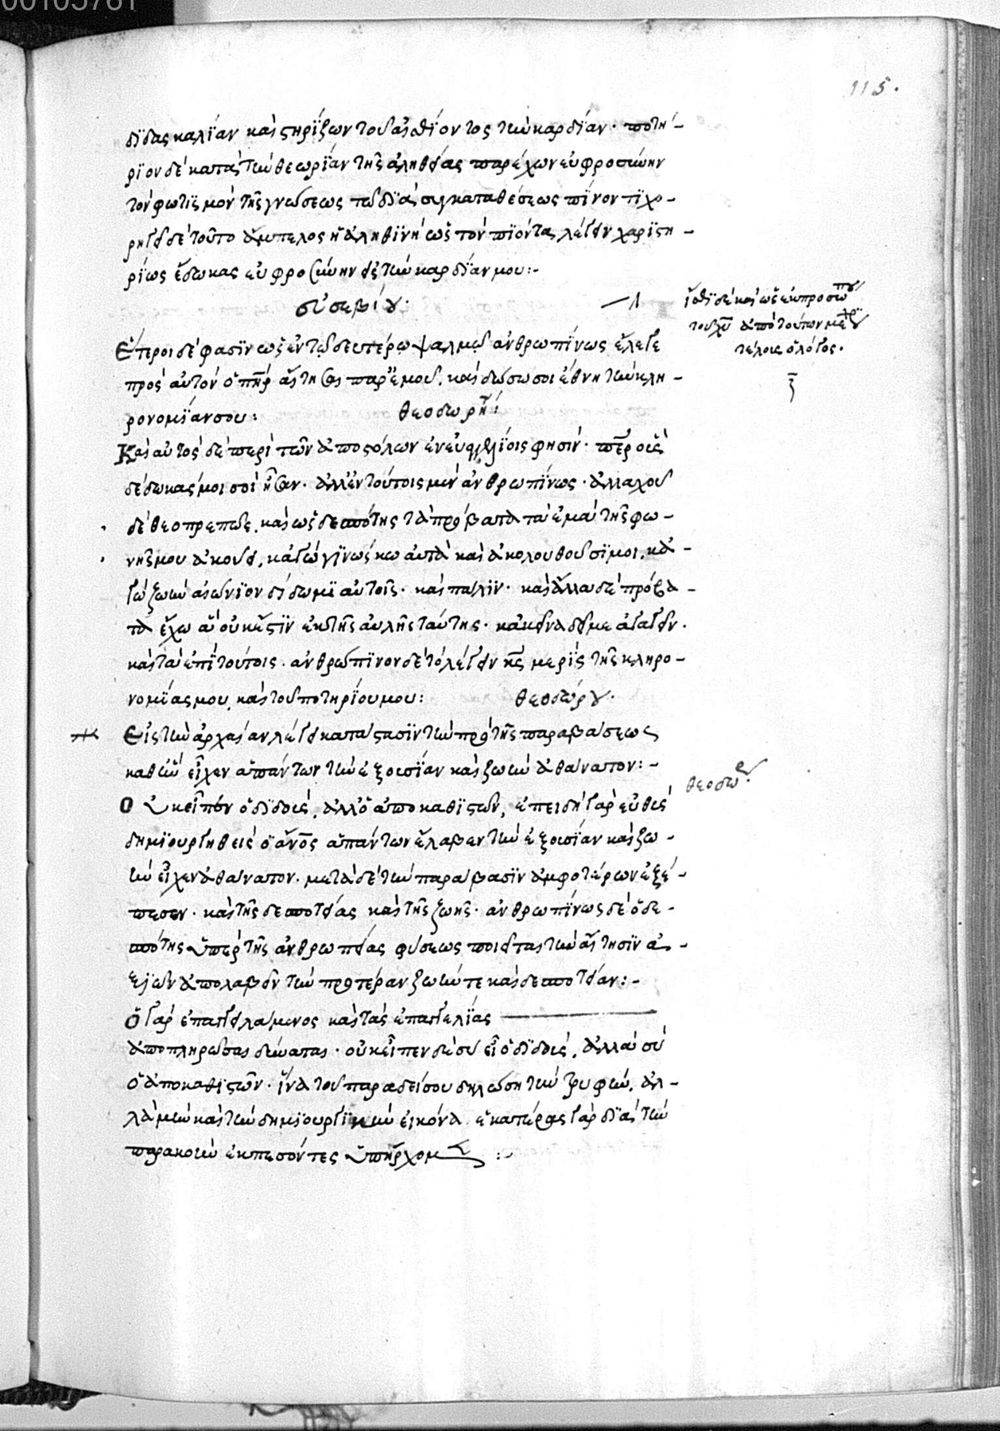 00105761
115.
δίδας καλίαν καὶ στηρίζων τοῦ ἐσθίοντος τὴν καρδίαν· ποτή-
ριον δὲ κατὰ τὴν θεωρίαν τῆς ἀληθείας παρέχων εὐφροσύνην
τὸν φωτισμὸν τῆς γνώσεως τῷ διὰ συγκαταθέσεως πίνοντι χο-
ρηγεῖ δὲ τοῦτο ἄμπελος ἡ ἀληθινὴ ὡς τὸν πίοντα λέγειν χαριστη-
ρίως ἔδωκας εὐφροσύνην εἰς τὴν καρδίαν μου:-
εὐσεβίου:
ἰστέον δὲ καὶ ὡς ἐκ προσώπου
τοῦ χυ ἀπὸ τούτων μέχρι
τέλους ὁ λόγος.
Ἕτεροι δέ φασιν ὡς ἐν τῷ δευτέρῳ ψαλμῷ ἀνθρωπίνως ἔλεγε
πρὸς αὐτὸν ὁ πηρ αἴτησαι παρ' ἐμοῦ, καὶ δώσω σοι ἔθνη τὴν κλη-
ρονομίαν σου:
θεοδωρήτ
Καὶ αὐτὸς δὲ περὶ τῶν ἀποστόλων ἐν εὐαγγελίοις φησίν· περ οὓς
δέδωκάς μοι σοὶ ἦσαν. ἀλλ' ἐν τούτοις μὲν ἀνθρωπίνως· ἀλλαχοῦ
δὲ θεοπρεπῶς, καὶ ὡς δεσπότης τὰ πρόβατα τὰ ἐμὰ τῆς φω-
νῆς μου ἀκούει, κἀγὼ γινώσκω αὐτὰ καὶ ἀκολουθοῦσί μοι, κἀ-
γὼ ζωὴν αἰώνιον δίδωμι αὐτοῖς· καὶ πάλιν· καὶ ἄλλα δὲ πρόβα-
τα ἔχω ἃ οὐκ ἔστιν ἐκ τῆς αὐλῆς ταύτης· κἀκεῖνα δεῖ με ἀγαγεῖν.
καὶ τὰ ἐπὶ τούτοις. ἀνθρώπινον δὲ τὸ λέγειν κς μερὶς τῆς κληρο-
νομίας μου, καὶ τοῦ ποτηρίου μου:
θεοδώρου.
Εἰς τὴν ἀρχαίαν λέγει κατάστασιν τὴν πρὸ τῆς παραβάσεως
καθ' ἣν εἶχεν ἁπάντων τὴν ἐξουσίαν καὶ ζωὴν ἀθάνατον:-
θεοδω
Οὐκ εἶπεν ὁ διδούς, ἀλλ' ὁ ἀποκαθιστῶν, ἐπειδὴ γὰρ εὐθὺς
δημιουργηθεὶς ὁ ἄνος ἁπάντων ἔλαβεν τὴν ἐξουσίαν καὶ ζω-
ὴν εἶχεν ἀθάνατον. μετὰ δὲ τὴν παράβασιν ἀμφοτέρων ἐξέ-
πεσεν· καὶ τῆς δεσποτείας καὶ τῆς ζωῆς· ἀνθρωπίνως δὲ ὁ δε-
σπότης ὑπὲρ τῆς ἀνθρωπείας φύσεως ποιεῖται τὴν αἴτησιν ἀ-
ξιῶν ἀπολαβεῖν τὴν προτέραν ζωήν τε καὶ δεσποτείαν:-
Ὁ γὰρ ἐπαγγειλάμενος καὶ τὰς ἐπαγγελίας
ἀποπληρῶσαι δύναται· οὐκ εἶπεν δὲ σὺ εἶ ὁ διδούς, ἀλλὰ σὺ
ὁ ἀποκαθιστῶν· ἵνα τοῦ παραδείσου δηλώσῃ τὴν τρυφήν, ἀλ-
λὰ μὴν καὶ τὴν δημιουργικὴν εἰκόνα. ἑκατέρας γὰρ διὰ τὴν
παρακοὴν ἐκπεσόντες ὑπήρχομεν:-